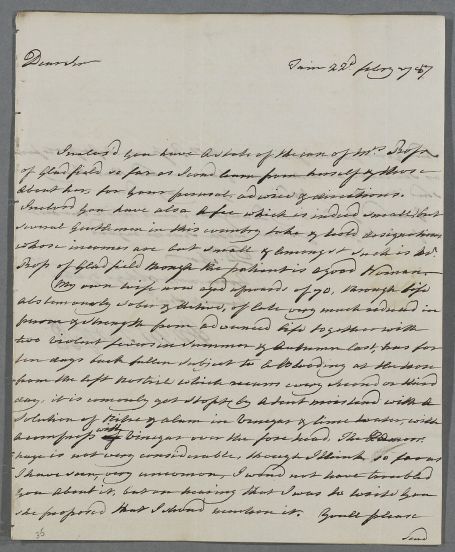 Dear Sir Tain 22d febry 1787
Inclos'd you have a state of the case of Mrs Ross
of Gladfield so far as I coud learn from herself & those
about her, for your perusal, advice & directions.
Inclos'd you have also a fee which is indeed small, but
several Gentlemen in this country take of lairds designations
whose incomes are but small & amongst such is Mr
Ross of Gladfield though the patient is a good Woman
My own wife now aged upwards of 70, through life
abstemiously sober & active, of late very much reduced in
person & strength from advanced life together with
two violent fevers in summer & Autumn last, has for
ten days back fallen subject to a bleeding at the nose
from the left nostril which recurs every second or third
day, it is comonly got stopt by a tent moistend with a
solution of Nitre & alum in Vinegar & lime water, with
a compress with Vinegar over the fore head. The Hæmorr-
hage is not very considerable, though I think so far as
I have seen, very uncommon, I woud not have troubled
you about it, but on hearing that I was to write you
she proposed that I shoud mention it. Youll please
send
36